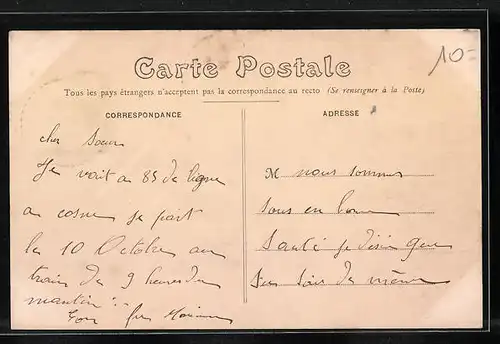 Carte Postale
10=
Tous les pays étrangers n'acceptent pas la correspondance au recto (Se renseigner à la Poste)
CORRESPONDANCE
cher Soeur
Je vait au 85 de ligne
au cosne je part
le 10 Octobre au
train de 9 heures du
mantin
ton frer
ADRESSE
M nous sommes
tous en bonne
Santé je désir que
de même